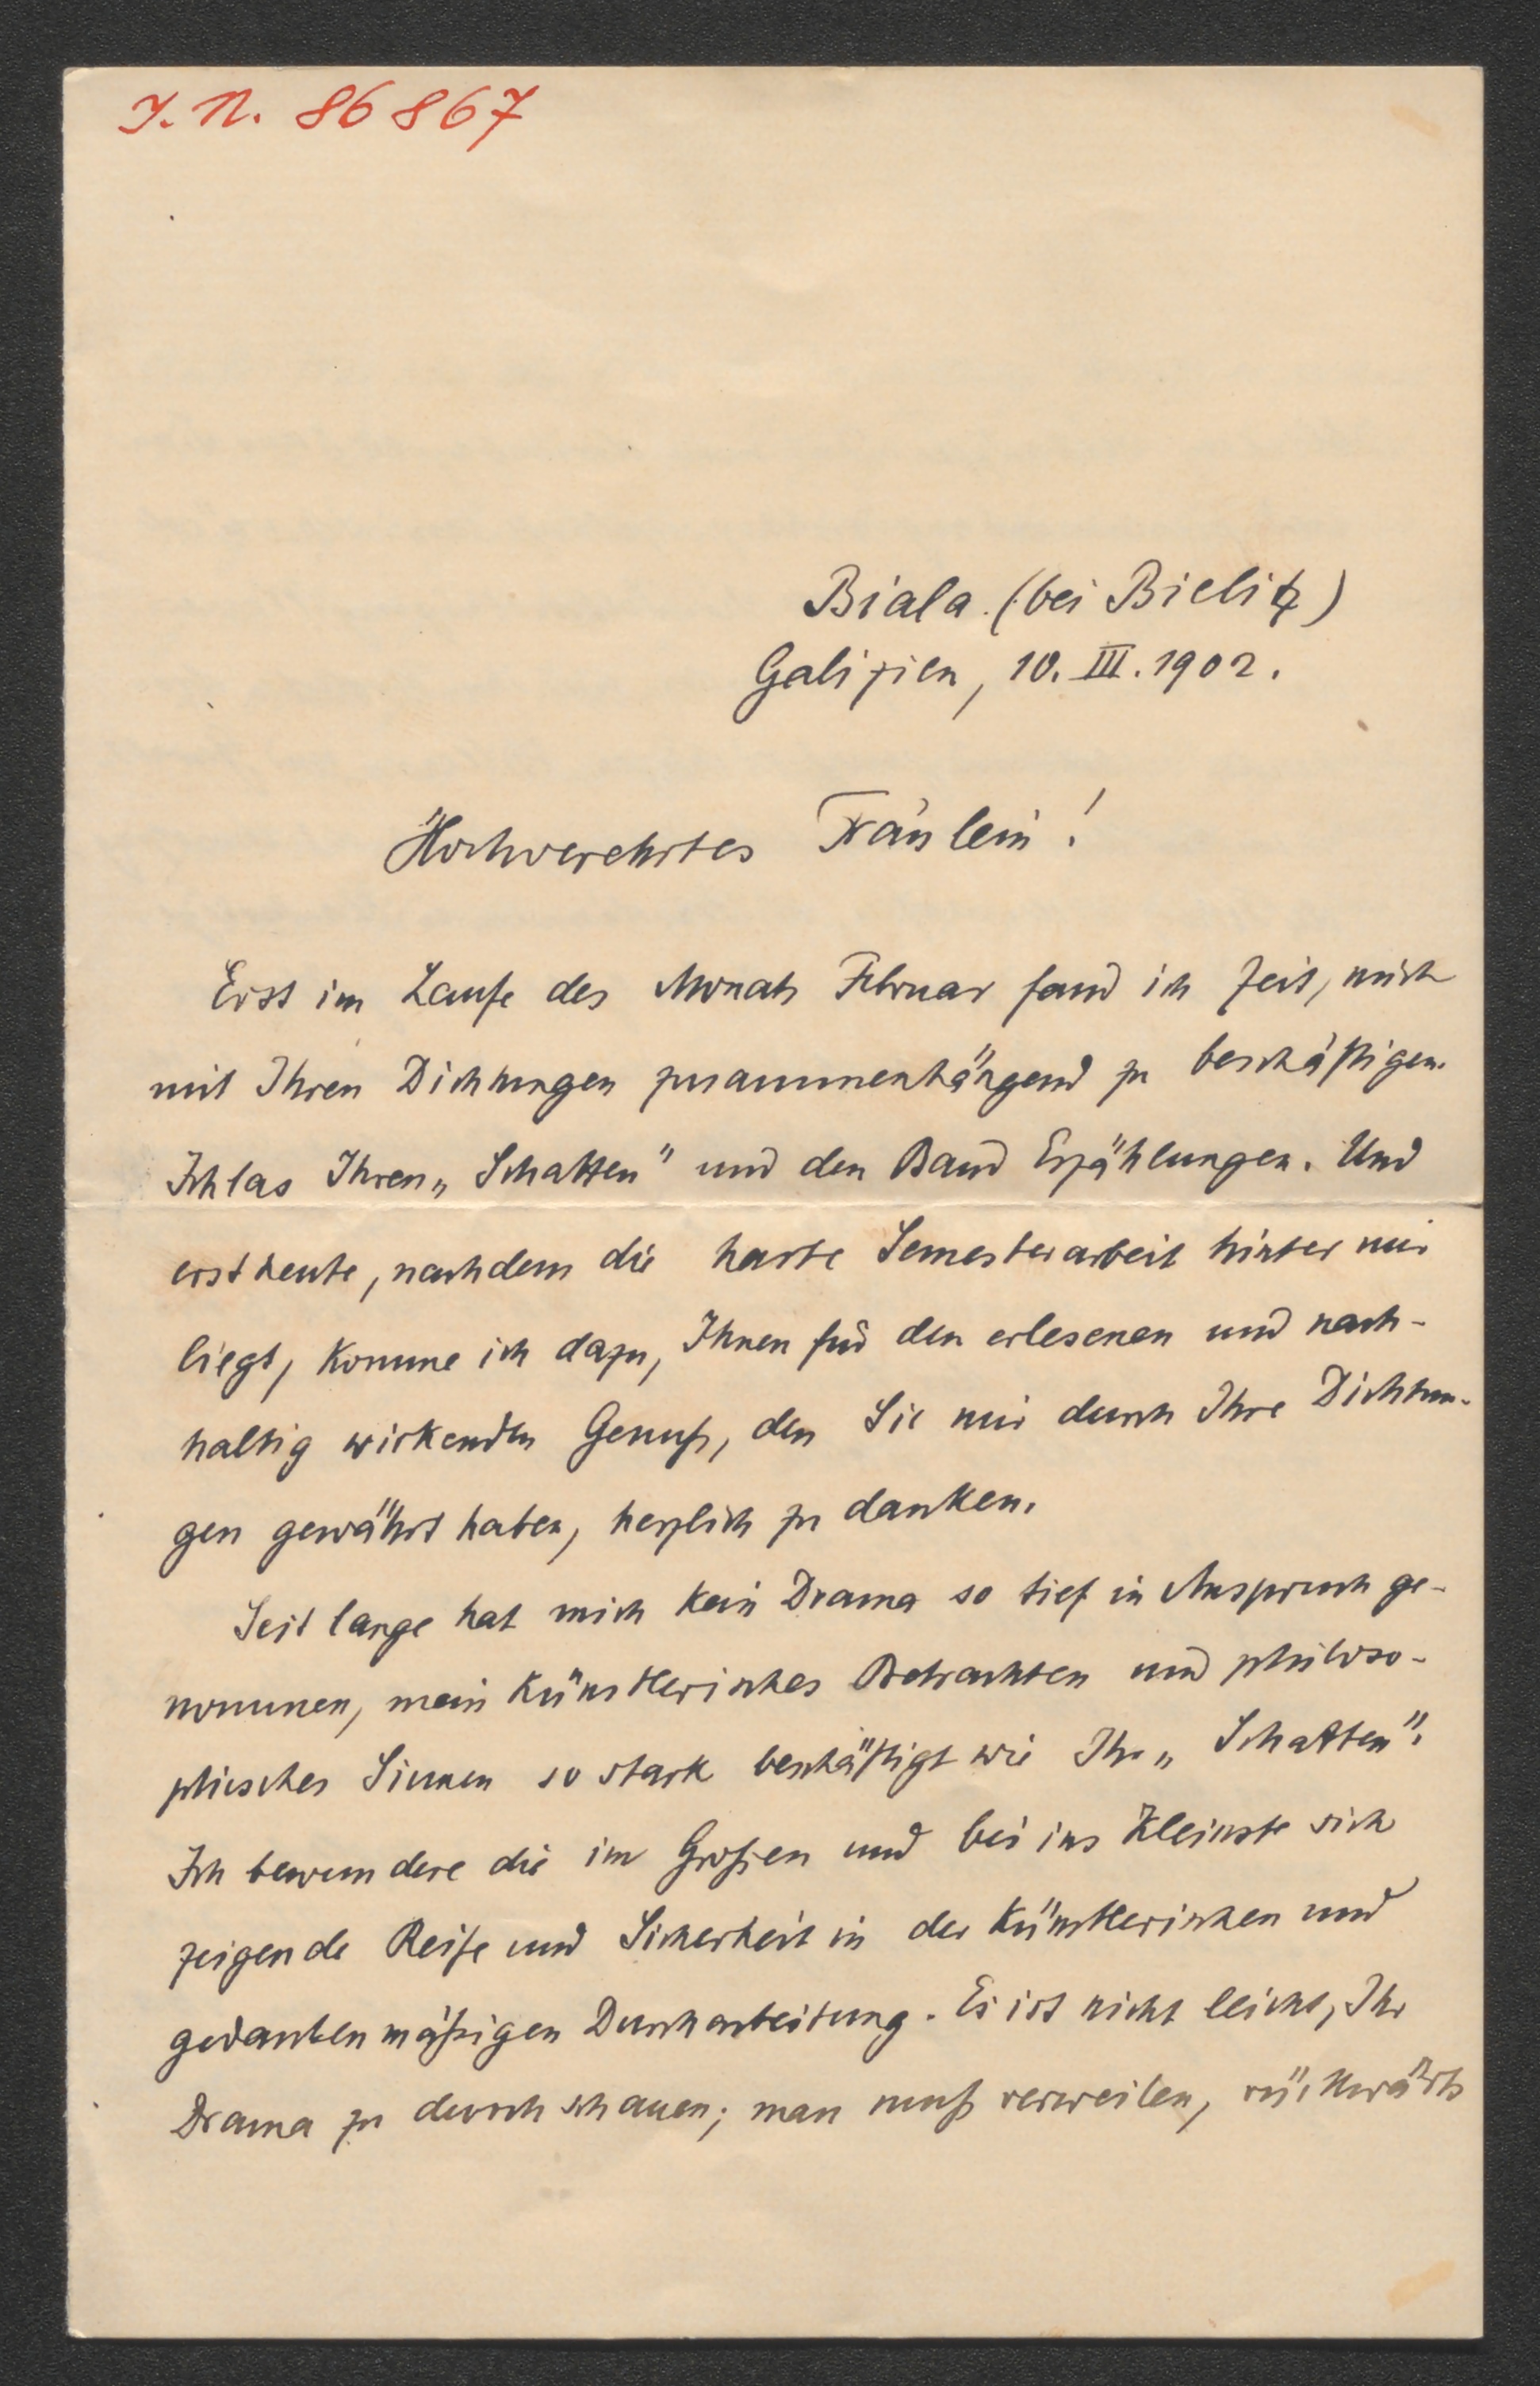 I.N. 86867
Biala (bei Bielitz)
Galizien, 10. III. 1902.
Hochverehrtes Fräulein!
Erst im Laufe des Monats Februar fand ich Zeit, mich
mit Ihren Dichtungen zusammenhängend zu beschäftigen.
Ich las Ihren „Schatten" und den Band Erzählungen. Und
erst heute, nachdem die harte Semesterarbeit hinter mir
liegt, komme ich dazu, Ihnen für den erlesenen und nach-
haltig wirkenden Genuß, den Sie mir durch Ihre Dichtun-
gen gewährt haben, herzlich zu danken.
Seit lange hat mich kein Drama so tief in Anspruch ge-
nommen, mein künstlerisches Betrachten und philoso-
phisches Sinnen so stark beschäftigt wie Ihr „Schatten".
Ich bewundere die im Großen und bis ins Kleinste sich
zeigende Reife und Sicherheit in der künstlerischen und
gedankenmäßigen Durcharbeitung. Es ist nicht leicht, Ihr
Drama zu durchschauen; man muß verweilen, rückwärts